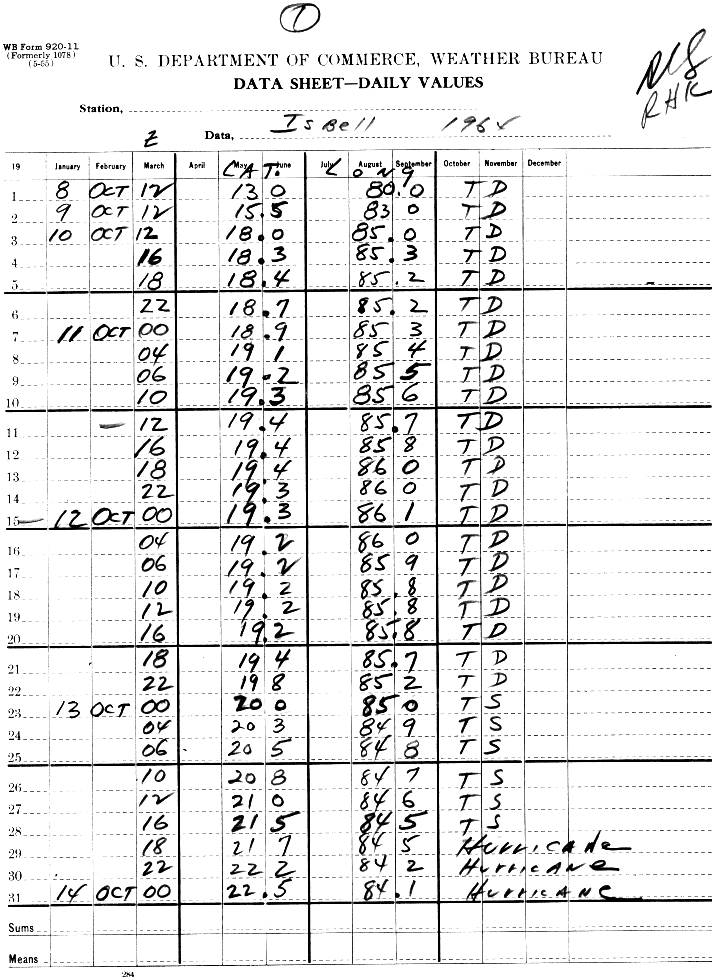 1
WB Form 920-11
(Formerly 1078)
(5-55)
U. S. DEPARTMENT OF COMMERCE, WEATHER BUREAU
DATA SHEET—DAILY VALUES
RHK
Station,
Z Data, IsBell 1964
19 January February March April May June July August September October November December
LAT. LONG
1 8 OCT 12 13 0 80.0 T D
2 9 OCT 12 15.5 83 0 T D
3 10 OCT 12 18.0 85.0 T D
4 16 18.3 85.3 T D
5 18 18.4 85.2 T D
6 22 18.7 85.2 T D
7 11 OCT 00 18.9 85 3 T D
8 04 19 1 85 4 T D
9 06 19.2 85 5 T D
10 10 19.3 85 6 T D
11 12 19.4 85.7 T D
12 16 19.4 85 8 T D
13 18 19.4 86 0 T D
14 22 19.3 86 0 T D
15 12 OCT 00 19.3 86 1 T D
16 04 19.2 86 0 T D
17 06 19.2 85 9 T D
18 10 19.2 85.8 T D
19 12 19.2 85.8 T D
20 16 19.2 85.8 T D
21 18 19 4 85.7 T D
22 22 19 8 85 2 T D
23 13 OCT 00 20 0 85 0 T S
24 04 20 3 84 9 T S
25 06 20 5 84 8 T S
26 10 20 8 84 7 T S
27 12 21 0 84 6 T S
28 16 21 5 84 5 T S
29 18 21 7 84 5 HURRICANE
30 22 22 2 84 2 HURRICANE
31 14 OCT 00 22.5 84.1 HURRICANE
Sums
Means
284